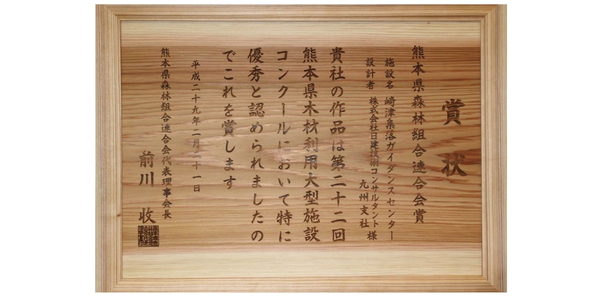 賞状
熊本県森林組合連合会賞
施設名 﨑津集落ガイダンスセンター
設計者 株式会社日建技術コンサルタント
九州支社 様
貴社の作品は第二十二回
熊本県木材利用大型施設
コンクールにおいて特に
優秀と認められましたの
でこれを賞します
平成二十九年一月三十一日
熊本県森林組合連合会代表理事会長
前川 收